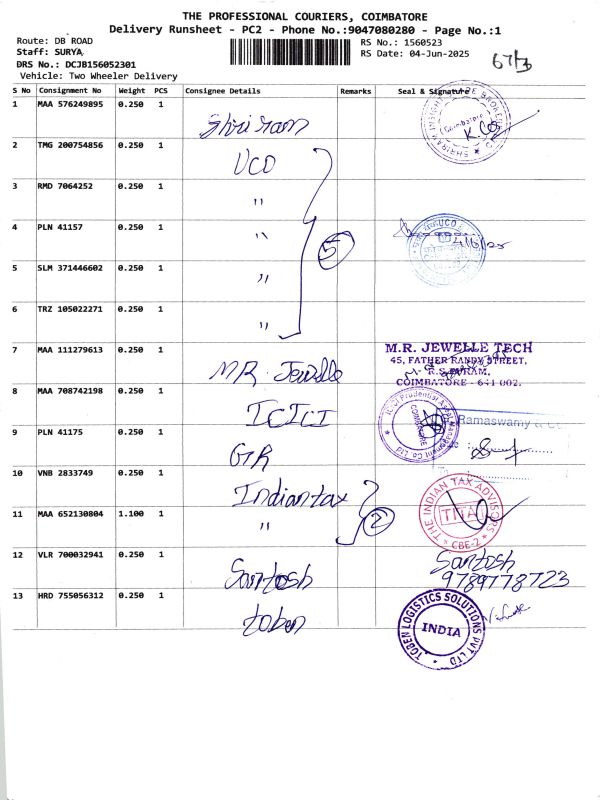 THE PROFESSIONAL COURIERS, COIMBATORE
Delivery Runsheet - PC2 - Phone No.:9047080280 - Page No.:1
Route: DB ROAD
Staff: SURYA,
DRS No.: DCJB156052301
Vehicle: Two Wheeler Delivery
RS No.: 1560523
RS Date: 04-Jun-2025
S No Consignment No Weight PCS Consignee Details Remarks Seal & Signature
1 MAA 576249895 0.250 1 Shriram
Coimbatore
2 TMG 200754856 0.250 1 UCO
3 RMD 7064252 0.250 1 "
4 PLN 41157 0.250 1 "
5 4/6/25
5 SLM 371446602 0.250 1 "
6 TRZ 105022271 0.250 1 "
7 MAA 111279613 0.250 1 MR. Jewelle
M.R. JEWELLE TECH
45, FATHER RANDY STREET,
R.S. PURAM,
COIMBATORE - 641 002.
8 MAA 708742198 0.250 1 ICICI
COIMBATORE
9 PLN 41175 0.250 1 GTR
Ramaswamy &
10 VNB 2833749 0.250 1 Indiantax
THE INDIAN TAX ADVISORS
CBE-2
11 MAA 652130804 1.100 1 "
2
12 VLR 700032941 0.250 1 Santosh
Santosh
9789778723
13 HRD 755056312 0.250 1 toben
TOBEN LOGISTICS SOLUTIONS PVT LTD
INDIA